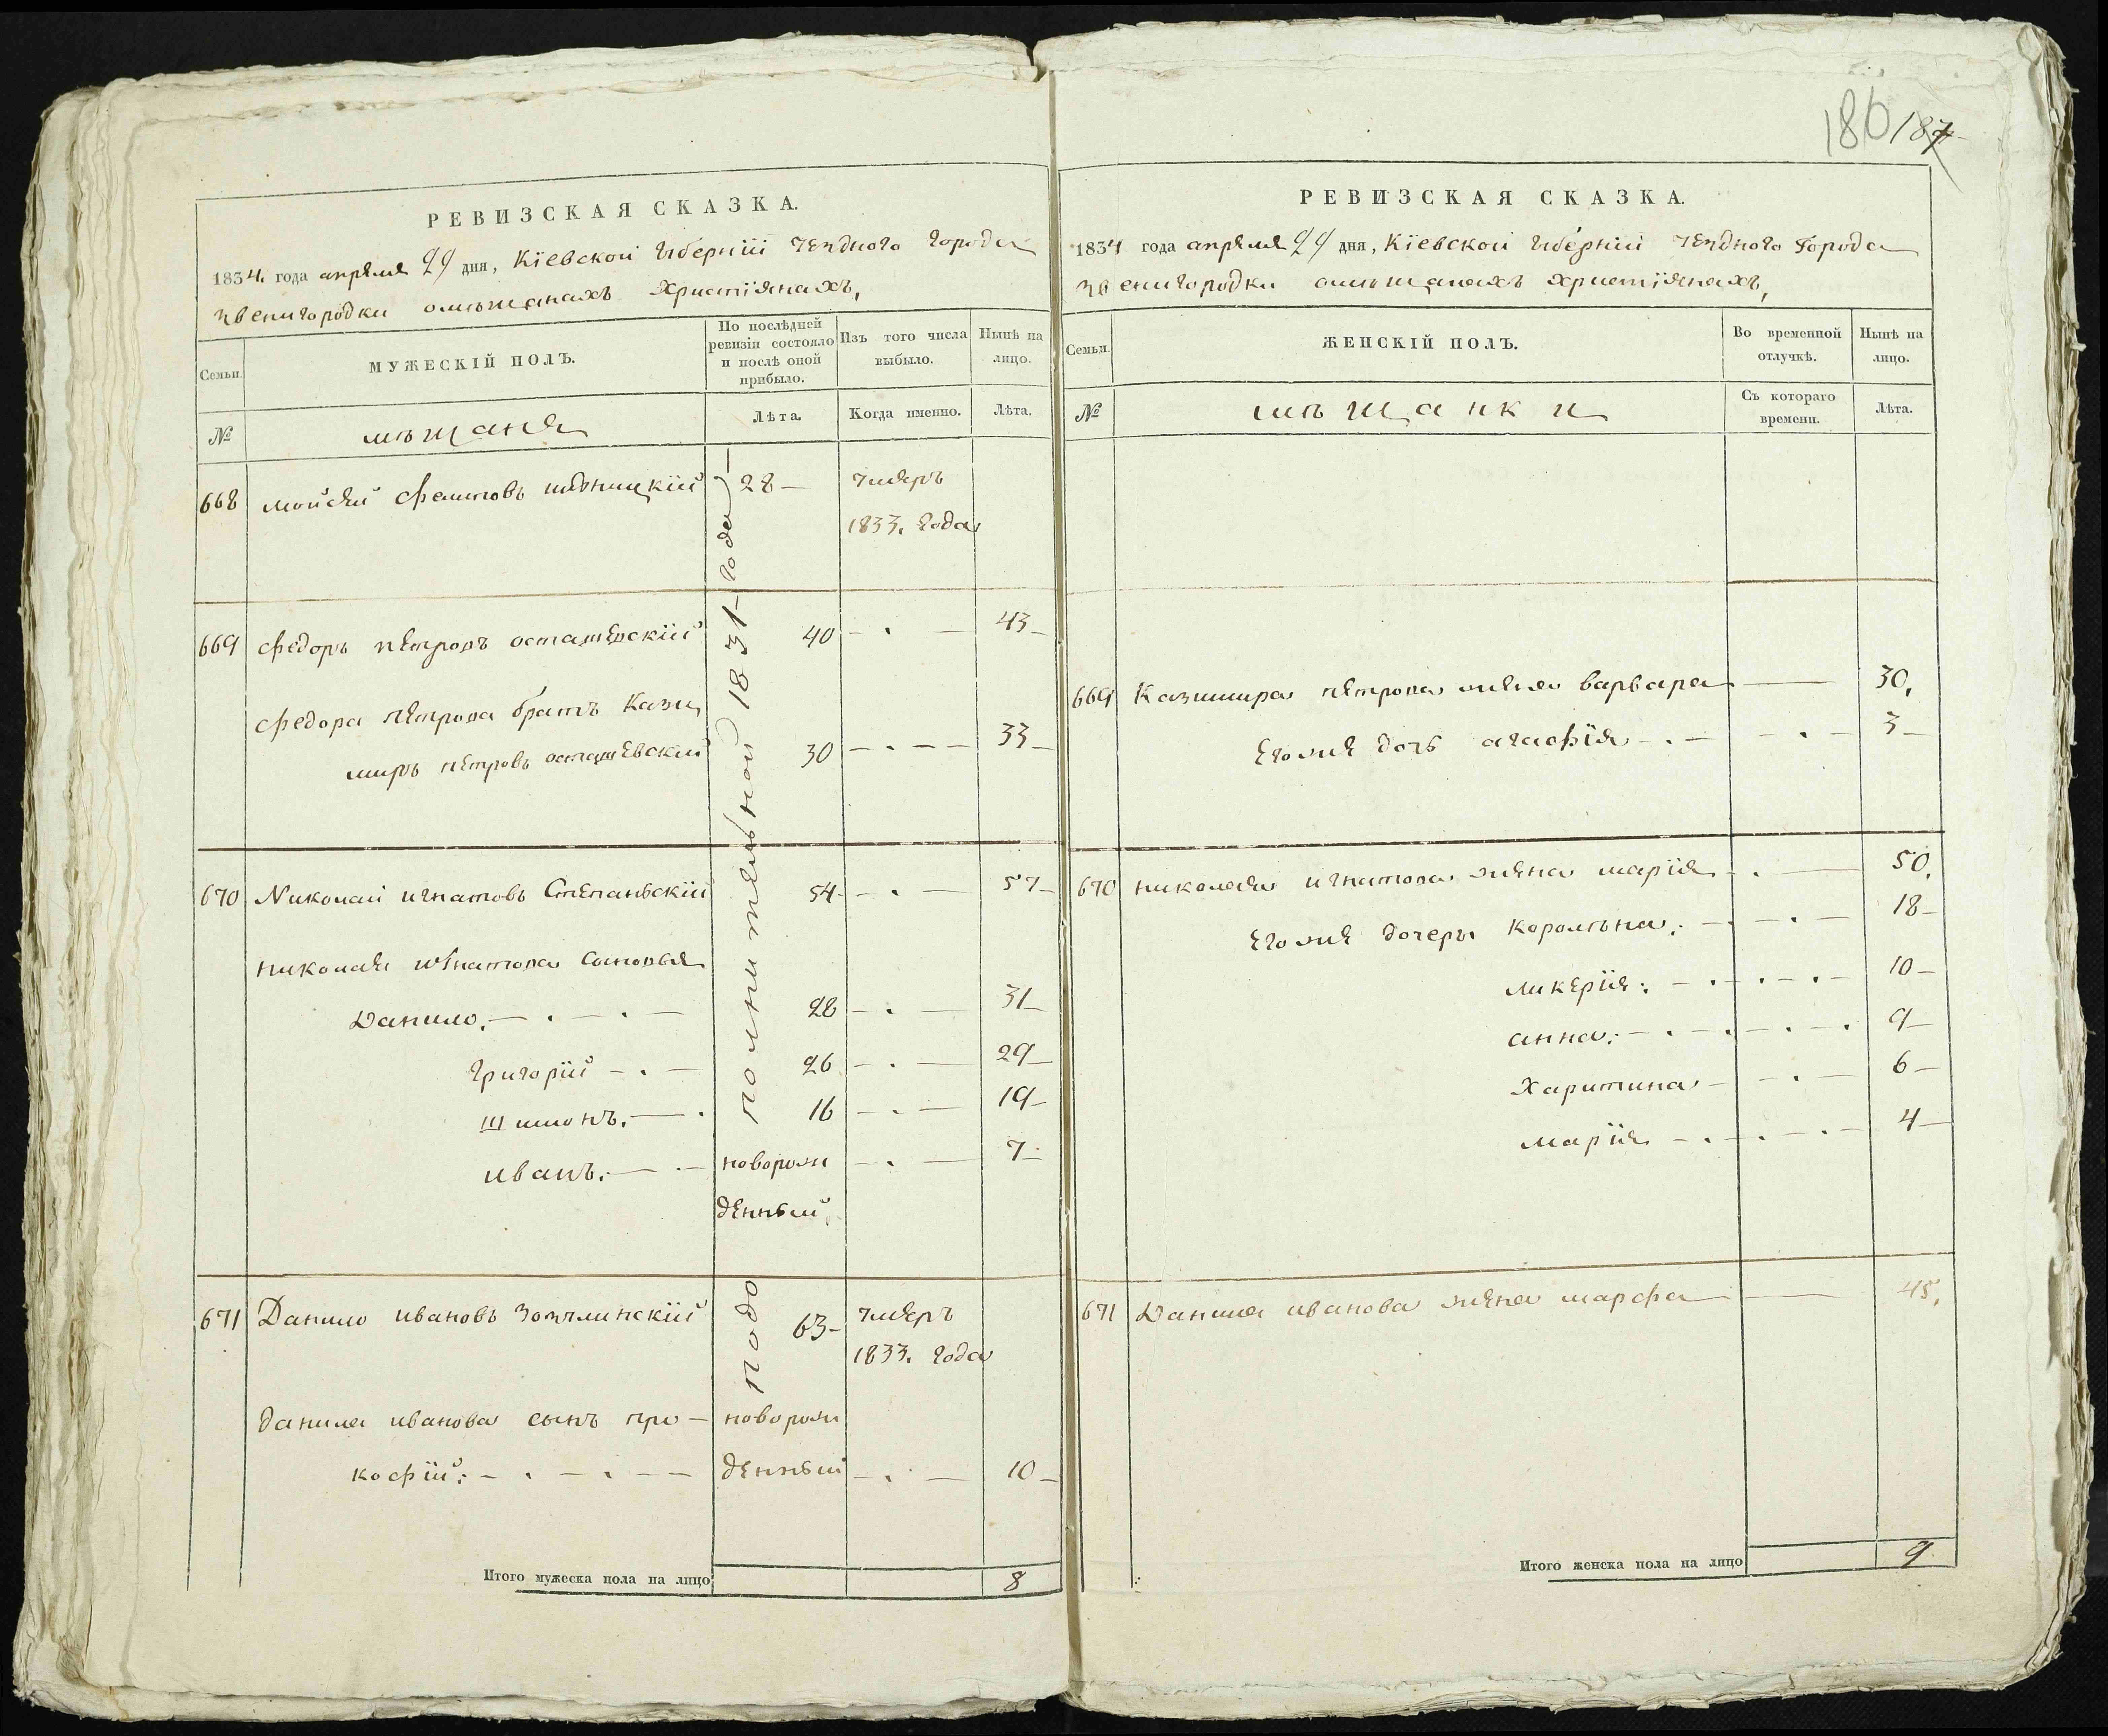 180 187
РЕВИЗСКАЯ СКАЗКА.
1834. года апреля 29 дня, Кіевской Губерніи уезднаго города
звенигородки омѣщанахъ христіянахъ,
Семьи.
МУЖЕСКІЙ ПОЛЪ.
По послѣдней ревизіи состояло и послѣ оной прибыло.
Изъ того числа выбыло.
Нынѣ на лицо.
№
мѣщаня
Лѣта.
Когда именно.
Лѣта.
подополнительной 1831 года
668 мойсей 28 умеръ
1833. года
669 федоръ петровъ осташевскій 40 43
федора петрова братъ Кази
миръ петровъ осташевскій 30 33
670 Николай игнатовъ Степаньскій 54 57
николая игнатова сыновья
Данило. 28 31
Григорій 26 29
Шимонъ. 16 19
иванъ. новорож 7
денный.
671 Данило ивановъ 63 умеръ
1833. года
данила иванова сынъ про новорож
кофій: денный 10
Итого мужеска пола на лицо 8
РЕВИЗСКАЯ СКАЗКА.
1834 года апреля 29 дня, Кіевской Губерніи уезднаго Города
звенигородки омѣщанахъ христіянахъ,
Семьи.
ЖЕНСКІЙ ПОЛЪ.
Во временной отлучкѣ.
Нынѣ на лицо.
№
мѣщанки
Съ котораго времени.
Лѣта.
669 Казимира петрова жена варвара 30.
Егоже дочь агафія 3
670 николая игнатова жена марія 50.
Егоже дочеры Каролѣна: 18
ликерія: 10
анна: 9
Харитина 6
марія 4
671 Данила иванова жена марфа 45.
Итого женска пола на лицо 9